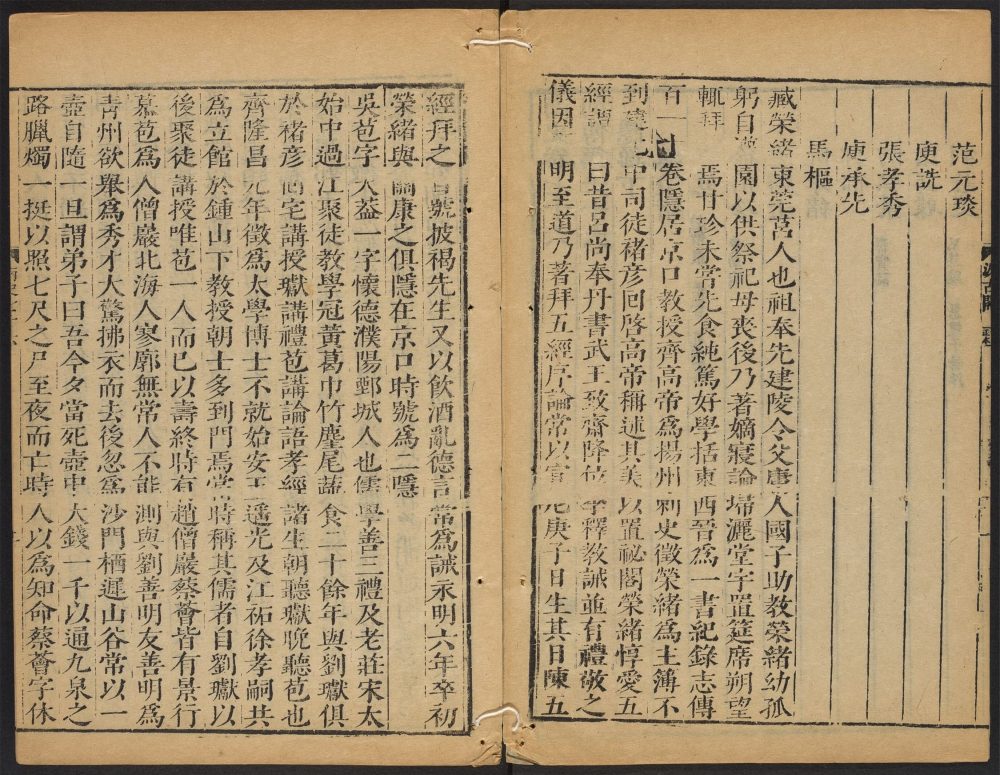 范元琰
庾詵
張孝秀
庾承先
馬樞
臧榮緒東莞莒人也祖奉先建陵令父庸人國子助教榮緒幼孤
躬自灌園以供祭祀母喪後乃著嫡寢論埽灑堂宇置筵席朔望
輒拜焉甘珍未嘗先食純篤好學括東西晉為一書紀錄志傳
百一十卷隱居京口教授齊高帝為揚州刺史徵榮緒為主簿不
到建元中司徒褚彥回啓高帝稱述其美以置祕閣榮緒惇愛五
經謂曰昔呂尚奉丹書武王致齋降位李釋教誡並有禮敬之
儀因明至道乃著拜五經序論常以宣尼庚子日生其日陳五
經拜之自號披褐先生又以飲酒亂德言常為誡永明六年卒初
榮緒與關康之俱隱在京口時號為二隱
吳苞字天蓋一字懷德濮陽鄄城人也儒學善三禮及老莊宋太
始中過江聚徒教學冠黃葛巾竹麈尾蔬食二十餘年與劉瓛俱
於褚彥回宅講授瓛講禮苞講論語孝經諸生朝聽瓛晚聽苞也
齊隆昌元年徵為太學博士不就始安王遙光及江祏徐孝嗣共
為立館於鍾山下教授朝士多到門焉當時稱其儒者自劉瓛以
後聚徒講授唯苞一人而已以壽終時有趙僧巖蔡薈皆有景行
慕苞為人僧巖北海人寥廓無常人不能測與劉善明友善明為
青州欲舉為秀才大驚拂衣而去後忽為沙門栖遲山谷常以一
壺自隨一旦謂弟子曰吾今夕當死壺中大錢一千以通九泉之
路臘燭一挺以照七尺之尸至夜而亡時人以為知命蔡薈字休